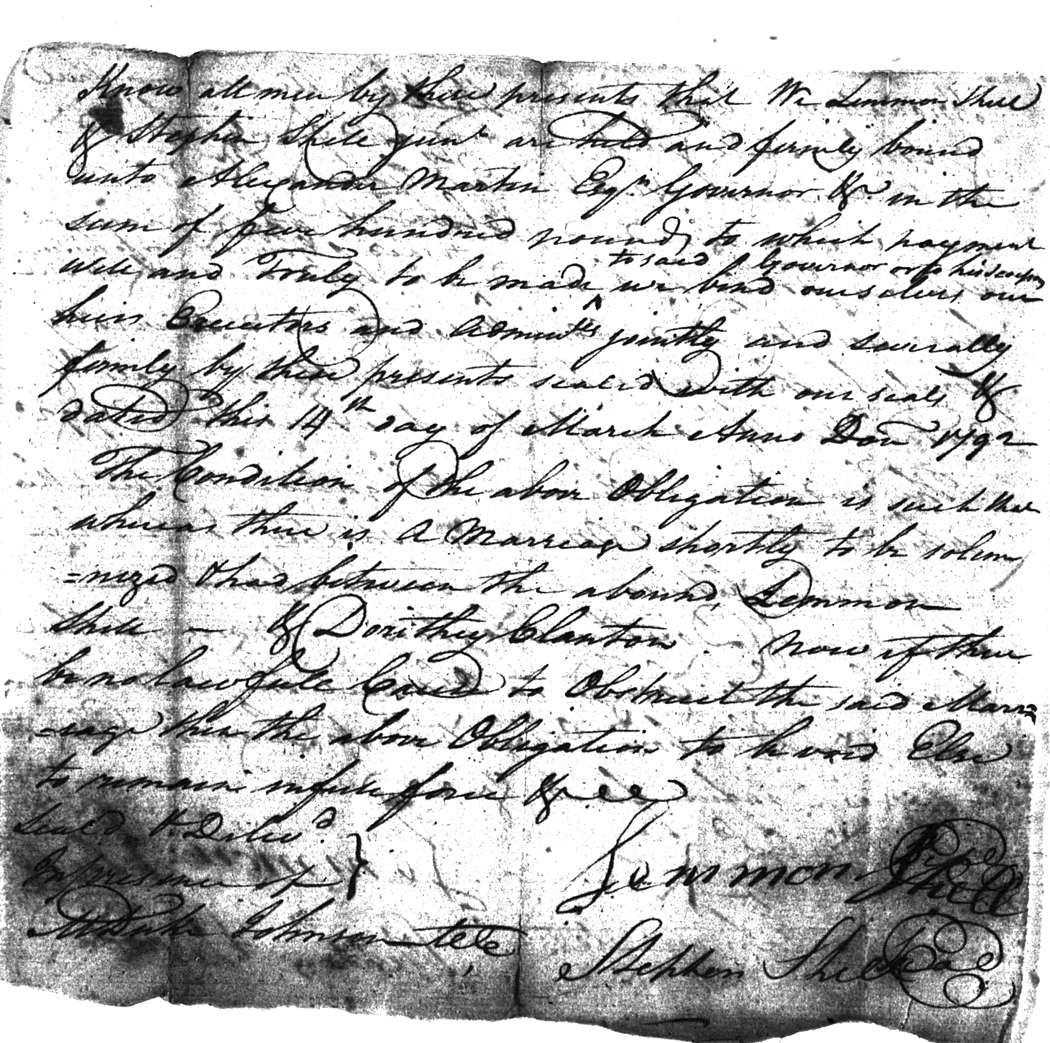 Know all men by these presents that We Lemmon Shell
& Stephen Shell Junr are held and firmly bound
unto Alexander Martin Esqr. Governor &c. in the
sum of five hundred pounds to which payment
to said Governor or to his
well and Truly to be made ^ we bind ourselves our
heirs Executors and Adminrs jointly and severally
firmly by these presents sealed with our seals &
dated this 14th day of March Anno Dom 1792
The Condition of the above Obligation is such that
whereas there is a Marriage shortly to be solem
=nized & had between the abound. Lemmon
Shell — & Dorithey Clanton Now if there
be no lawfull Cause to Obstruct the said Marri
=iage then the above Obligation to be void Else
to remain in full force &c
Seal'd & Deliv'd
In presence of }
Johnson
Lemmon Shell Seal
Stephen Shell Seal